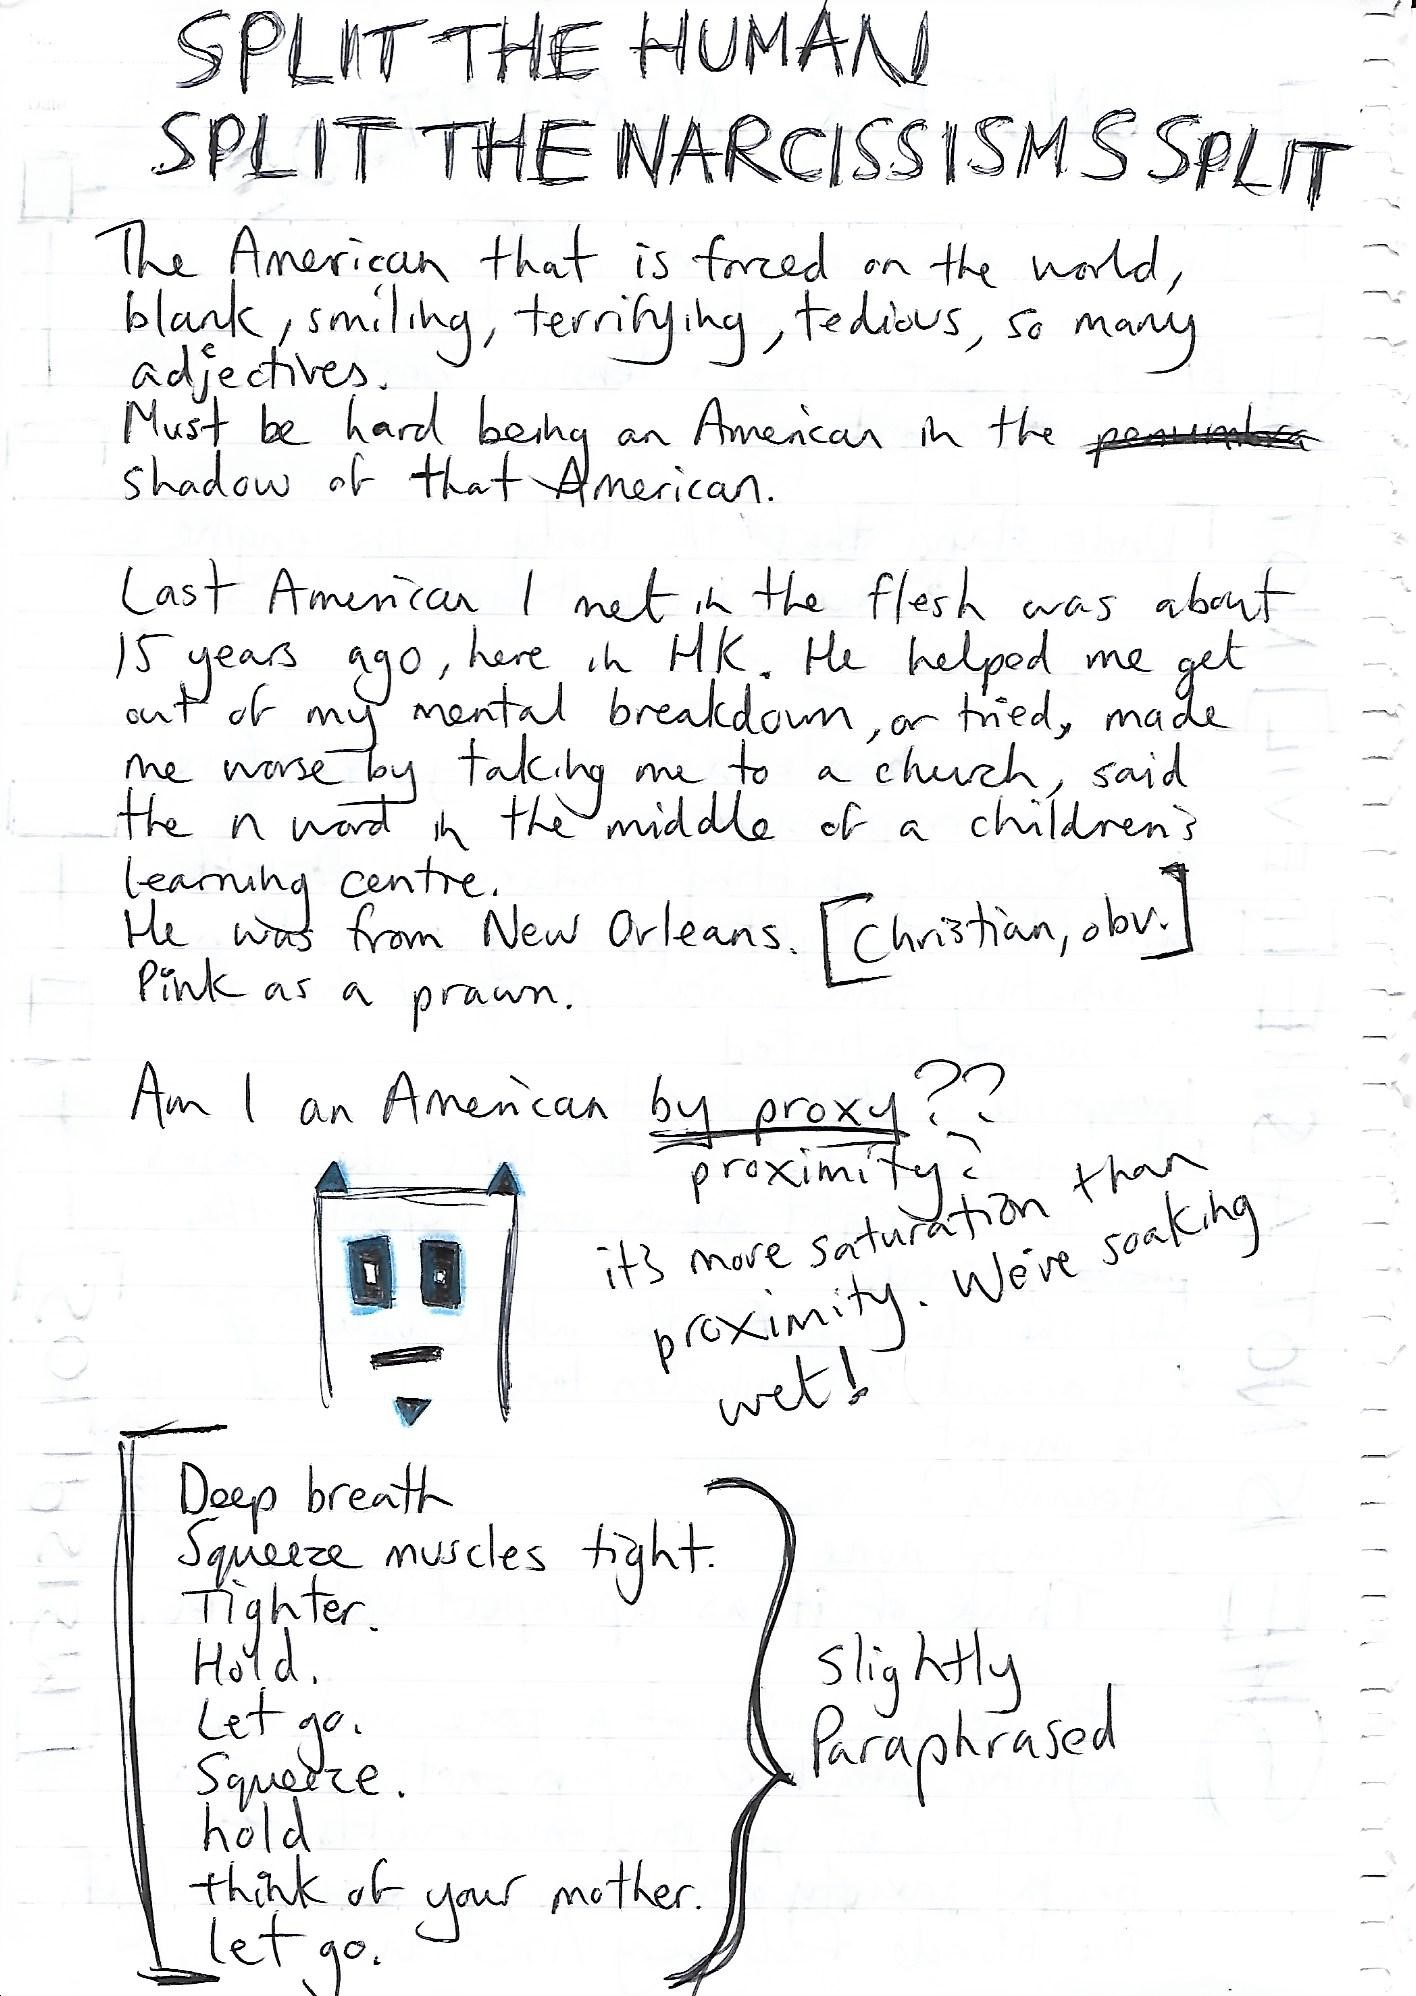 SPLIT THE HUMAN
SPLIT THE NARCISSISMS SPLIT
The American that is forced on the world,
blank, smiling, terrifying, tedious, so many
adjectives.
Must be hard being an American in the penumbra
shadow of that American.
Last American I met in the flesh was about
15 years ago, here in HK. He helped me get
out of my mental breakdown, or tried, made
me worse by taking me to a church, said
the n word in the middle of a children's
learning centre.
He was from New Orleans. [Christian, obv.]
Pink as a prawn.
Am I an American by proxy??
proximity?
it's more saturation than
proximity. We're soaking
wet!
Deep breath
Squeeze muscles tight.
Tighter.
Hold.
Let go.
Squeeze.
hold
think of your mother.
let go.
Slightly
Paraphrased